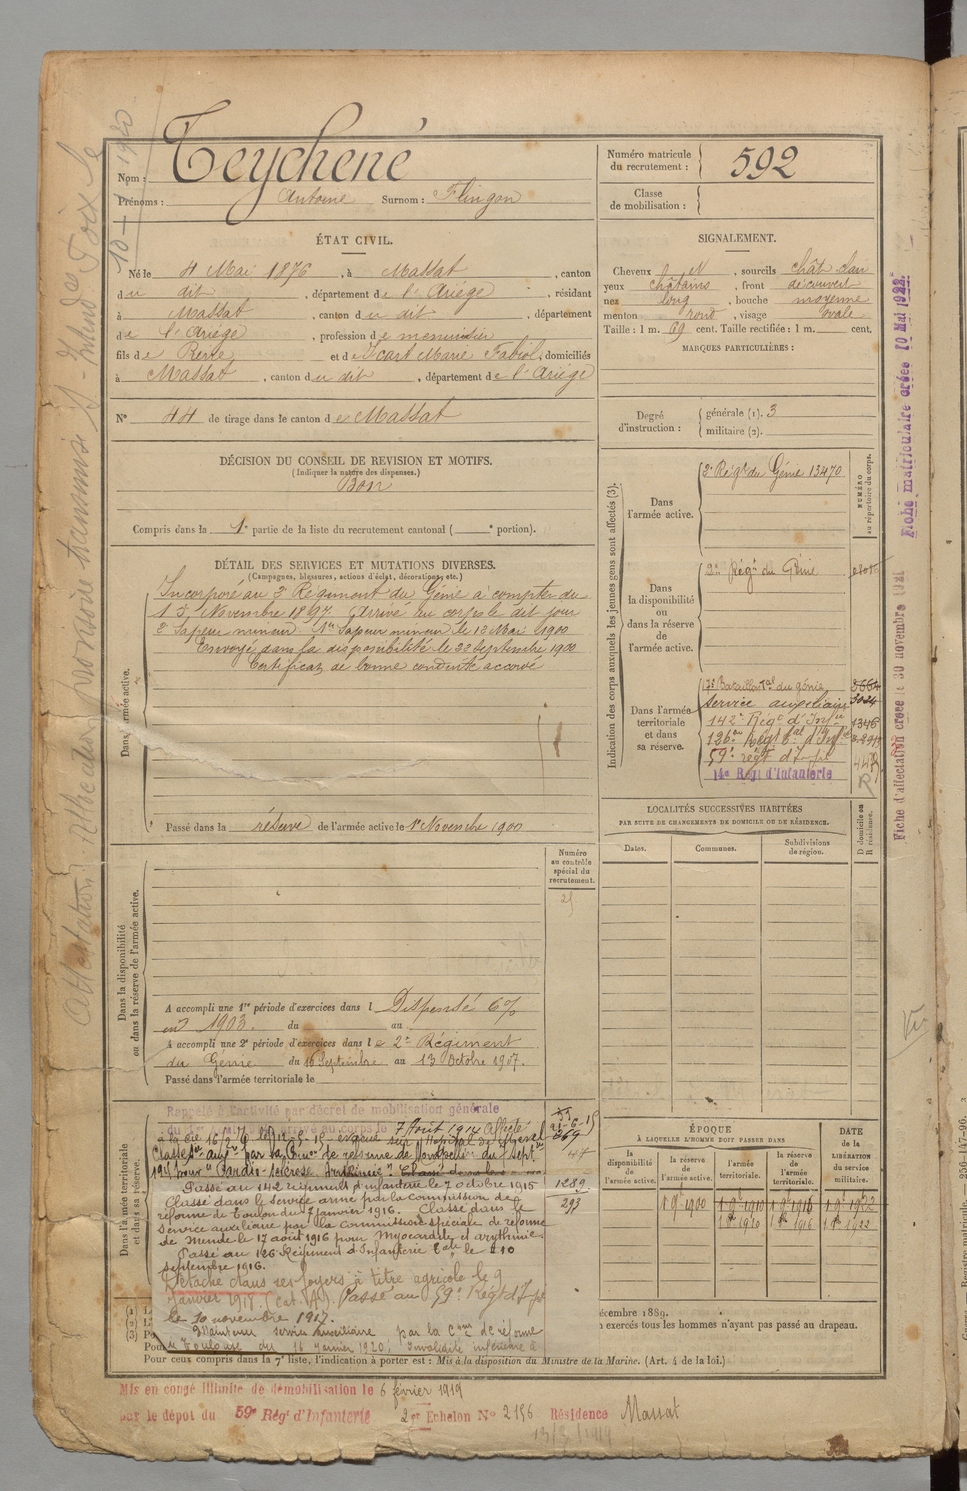 Teychené
Nom :
Prénoms : Antoine Surnom : Flingon
Numéro matricule du recrutement : 592
Classe de mobilisation :
ÉTAT CIVIL.
Né le 4 Mai 1876, à Massat, canton
du dit, département de l'Ariège, résidant
à Massat, canton du dit, département
de l'Ariège, profession de menuisier
fils de et de Icart Marie, domiciliés
à Massat, canton du dit, département de l'Ariège
N° 44 de tirage dans le canton de Massat
SIGNALEMENT.
Cheveux, sourcils chât clair
yeux châtains, front découvert
nez long, bouche moyenne
menton rond, visage ovale
Taille : 1 m. 69 cent. Taille rectifiée : 1 m. cent.
MARQUES PARTICULIÈRES :
Degré d'instruction : générale (1). 3
militaire (2).
DÉCISION DU CONSEIL DE REVISION ET MOTIFS.
(Indiquer la nature des dispenses.)
Bon
Compris dans la 1e partie de la liste du recrutement cantonal ( e portion).
DÉTAIL DES SERVICES ET MUTATIONS DIVERSES.
(Campagnes, blessures, actions d'éclat, décorations, etc.)
Dans l'armée active.
Incorporé au 2e Régiment du Génie à compter du
15 Novembre 1897. Arrivé au corps le dit jour
2e Sapeur mineur. 1er Sapeur mineur le 12 Mai 1900
Envoyé dans la disponibilité le 22 Septembre 1900
Certificat de bonne conduite accordé
Passé dans la réserve de l'armée active le 1er Novembre 1900
Indication des corps auxquels les jeunes gens sont affectés (3).
NUMÉRO au répertoire du corps.
Dans l'armée active.
2e Régt du Génie 13470
Dans la disponibilité ou dans la réserve de l'armée active.
2e Régt du Génie
Dans l'armée territoriale et dans sa réserve.
17e Bataillon Tal du génie
Service auxiliaire 3024
142e Régt d'Infie 1346
126em Régt tal d'Infie
59e régt d'Infie
14e Régt d'Infanterie
R
LOCALITÉS SUCCESSIVES HABITÉES
PAR SUITE DE CHANGEMENTS DE DOMICILE OU DE RÉSIDENCE.
Dates. Communes. Subdivisions de région. D domicile ou R résidence.
Dans la disponibilité ou dans la réserve de l'armée active.
Numéro au contrôle spécial du recrutement.
A accompli une 1re période d'exercices dans l Dispensé 6%
en 1903. du au
A accompli une 2e période d'exercices dans le 2e Régiment
du Génie du 16 Septembre au 13 Octobre 1907.
Passé dans l'armée territoriale le
Dans l'armée territoriale et dans sa réserve.
Rappelé à l'activité par décret de mobilisation générale
du 1er Août Arrivé au corps le 7 Août 1914 Affecté
à la Cie 16/2 G le 12-5-15 évacué sur l'Hôpital de
Classé Ser auxre par la Com de réforme de Montpellier du 7 Septre
1915 pour "Cardio-sclérose Arythmie"
Passé au 142 Régiment d'infanterie le 7 octobre 1915
Classé dans le service armé par la Commission de
réforme de Toulon du 7 janvier 1916. Classé dans le
service auxiliaire par la commission spéciale de réforme
de Mende le 17 août 1916 pour myocardite et arythmie.
Passé au 126 Régiment d'Infanterie tale le 10
septembre 1916.
Détaché dans ses foyers à titre agricole le 9
janvier 1918. (Cat. A). Passé au 59e Régt d'Infie
le 10 novembre 1917.
Maintenu service auxiliaire par la Com de réforme
de Toulouse du 16 janvier 1920; Invalidité inférieure à
269
1289
293
ÉPOQUE
À LAQUELLE L'HOMME DOIT PASSER DANS
la disponibilité de l'armée active. la réserve de l'armée active. l'armée territoriale. la réserve de l'armée territoriale. DATE de la LIBÉRATION du service militaire.
1 9bre 1900 1 9bre 1910 1 9bre 1916 1 9bre 1922
1 8bre 1910 1 8bre 1916 1 8bre 1922
décembre 1889.
exercés tous les hommes n'ayant pas passé au drapeau.
Pour ceux compris dans la 7e liste, l'indication à porter est : Mis à la disposition du Ministre de la Marine. (Art. 4 de la loi.)
Mis en congé illimité de démobilisation le 6 février 1919
par le dépôt du 59e Régt d'Infanterie 2e Echelon N° 2186 Résidence Massat
Fiche matriculaire créée 10 Mai 1922
Fiche d'affectation créée le 30 novembre 1921